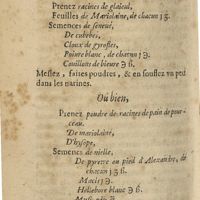 Prenez racines de glaieul,
Feuilles de Mariolaine, de chacun ʒ ß.
Semences de seneue,
De cubebes,
Cloux de gyrofles,
Poiure blanc, de chacun ℈ 9.
Couillons de bieure ℈ 6.
Meslez, faites poudres, & en soufflez vn peu
dans les narines.
Ou bien,
Prenez poudre de racines de pain de pour-
ceau.
De mariolaine,
D'hysope,
Semences de nielle,
De pyretre ou pied d'Alexandre, de
chacun ʒ ß 6.
Macis ℈.
Hellebore blanc ℈ 6.